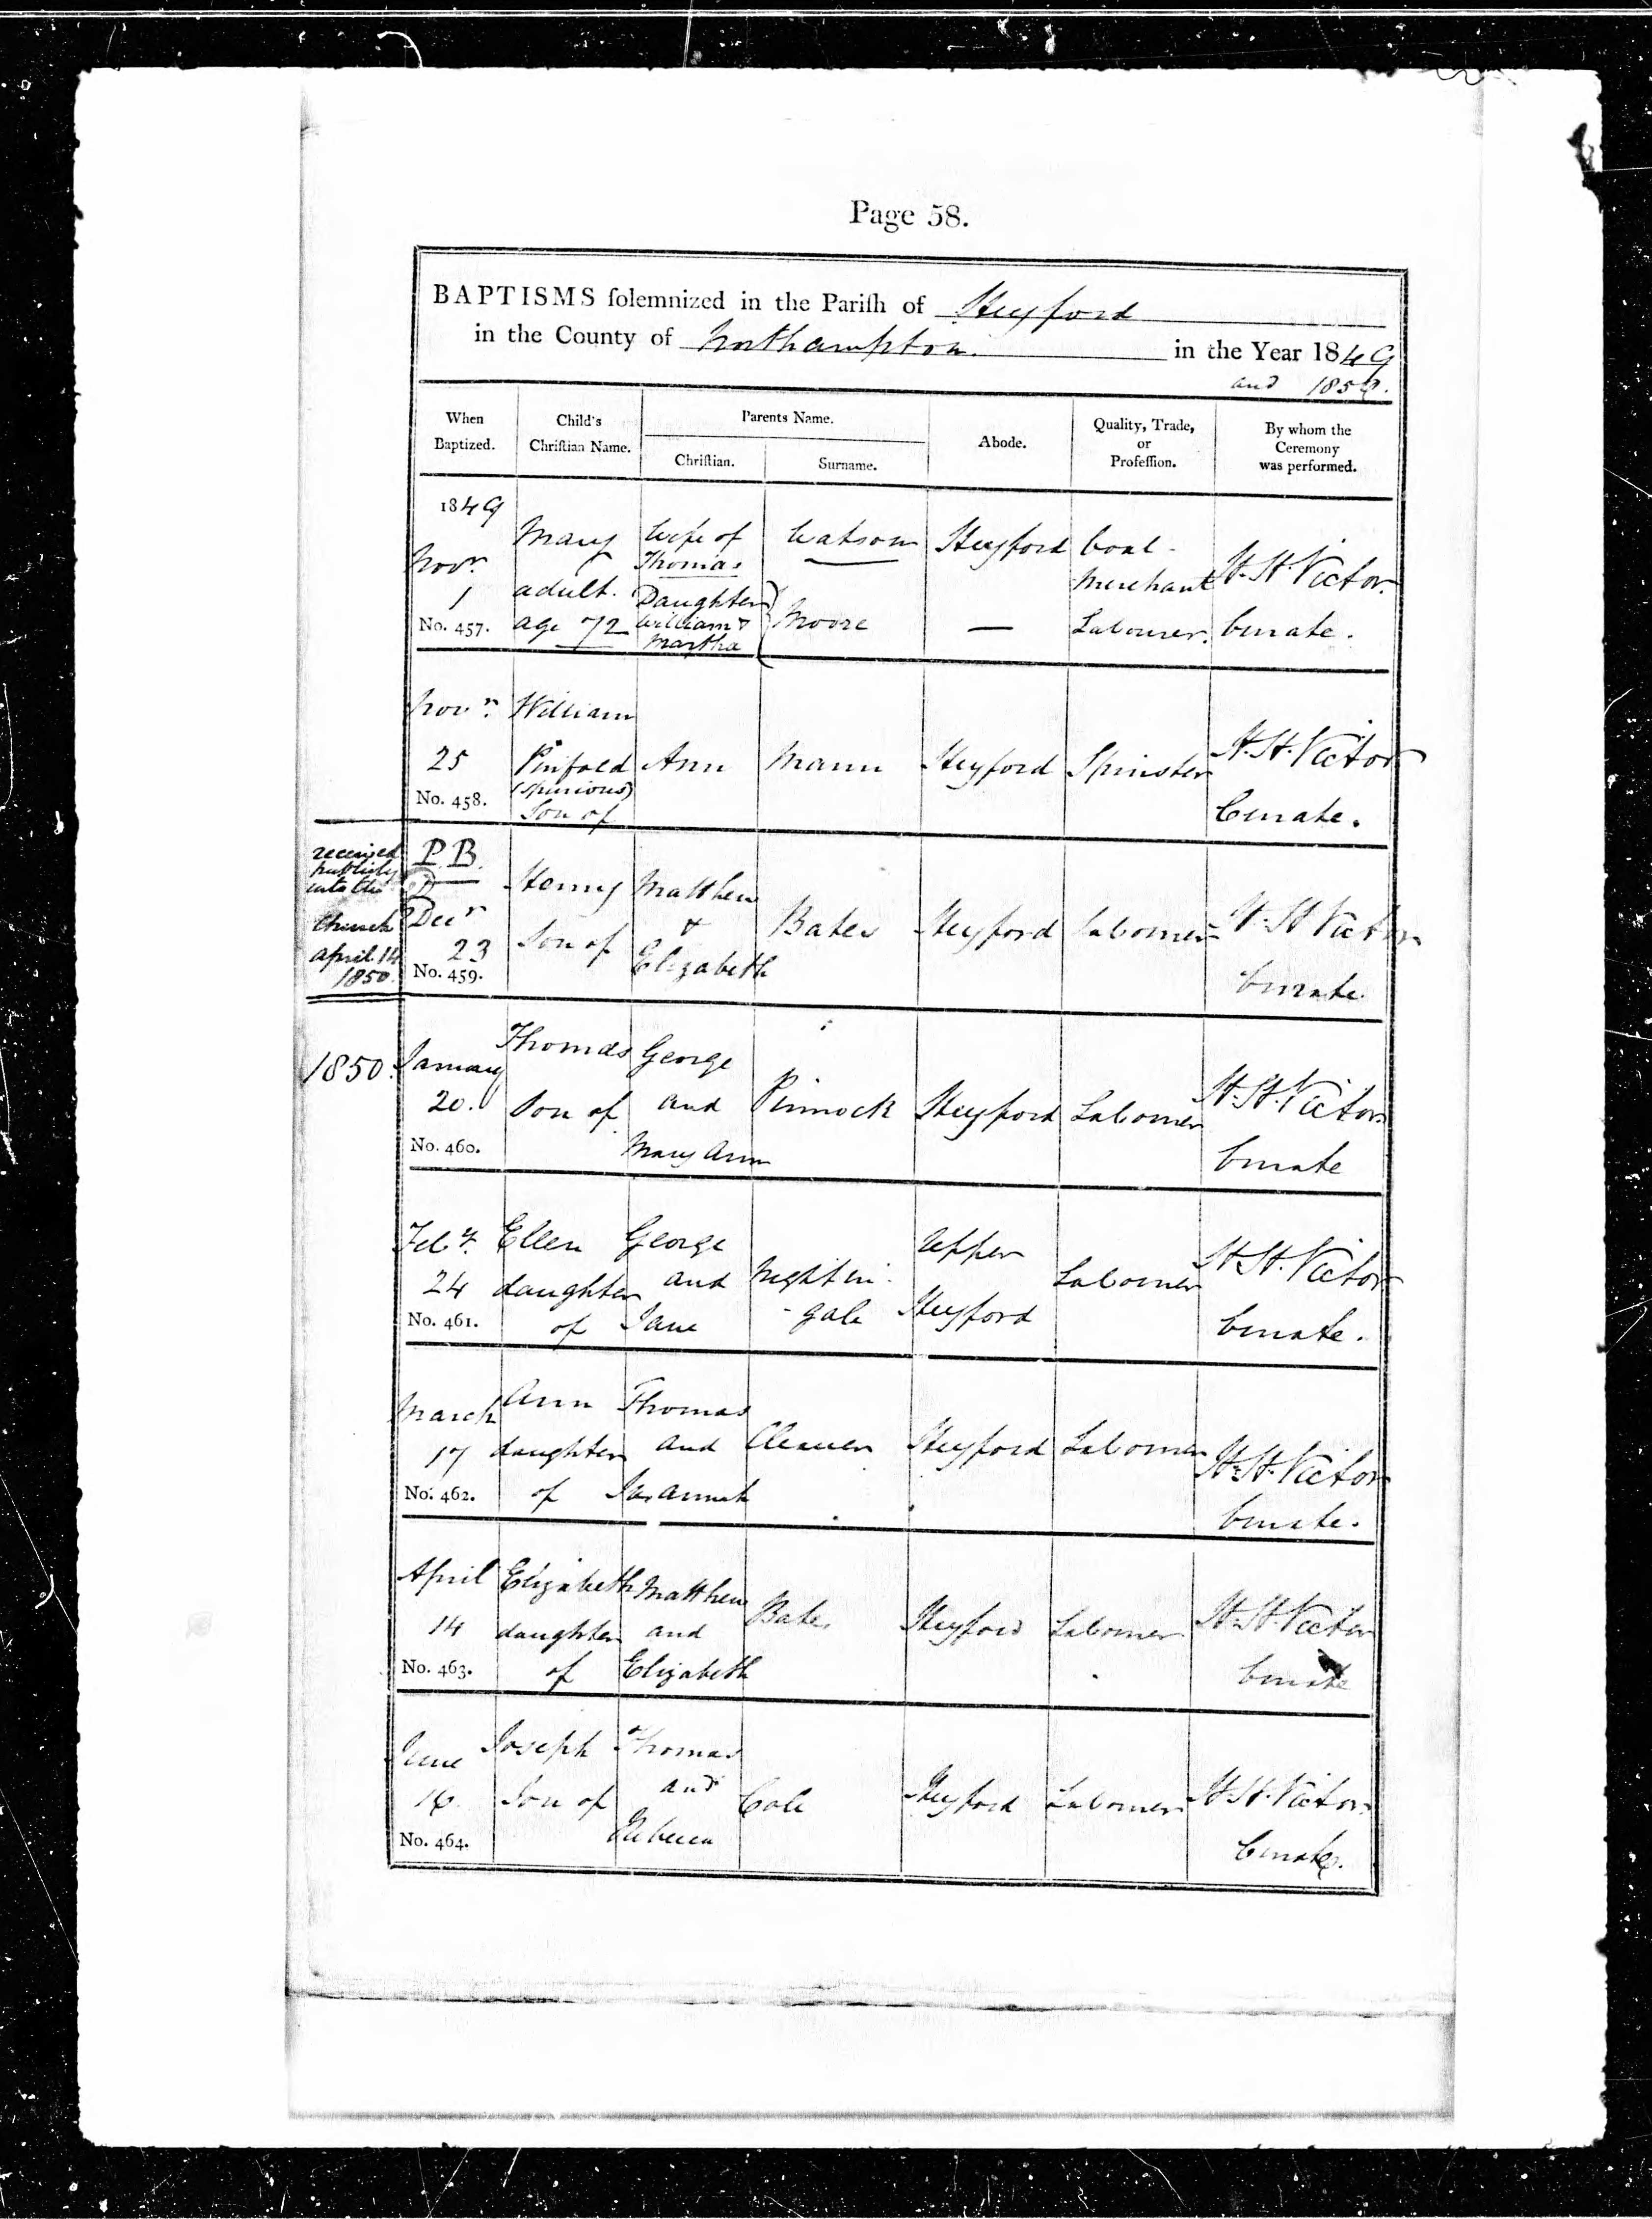 Page 58.
BAPTISMS ſolemnized in the Pariſh of Heyford
in the County of Northampton. in the Year 1849
and 1850.
When Baptized. Child's Chriſtian Name. Parents Name. Chriſtian. Surname. Abode. Quality, Trade, or Profeſſion. By whom the Ceremony was performed.
1849
Novr. 1 No. 457. Mary adult. age 72 Wife of Thomas Daughter William & Martha Watson Moore Heyford — Coal Merchant Labourer. H. St. Victor. Curate.
Novr. 25 No. 458. William Pinfold (spurious) Son of Ann Mann Heyford Spinster H. St. Victor Curate.
received publicly into the Church April 14 1850.
P.B. Decr 23 No. 459. Henry Son of Matthew & Elizabeth Bates Heyford Labourer H. St. Victor Curate.
1850. January 20. No. 460. Thomas Son of George and Mary Ann Pinnock Heyford Labourer H. St. Victor. Curate
Feby. 24 No. 461. Ellen daughter of George and Jane Nightin- -gale Upper Heyford Labourer H. St. Victor Curate.
March 17 No. 462. Ann daughter of Thomas and Susannah Cleaver Heyford Labourer H. St. Victor Curate.
April 14 No. 463. Elizabeth daughter of Matthew and Elizabeth Bates Heyford Labourer H. St. Victor Curate
June 16. No. 464. Joseph Son of Thomas and Rebecca Cole Heyford Labourer H. St. Victor. Curate.